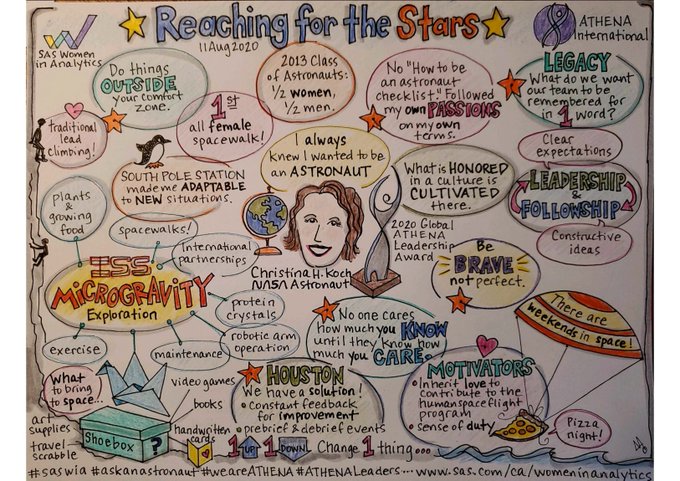 Reaching for the Stars
11Aug2020
SAS Women
in Analytics
ATHENA
International
Do things
OUTSIDE
your comfort
zone.
1ST
all female
spacewalk!
2013 Class
of Astronauts:
1/2 women,
1/2 men.
No "How to be
an astronaut
checklist." Followed
my own PASSIONS
on my own
terms.
LEGACY
What do we want
our team to be
remembered for
in 1 word?
traditional
lead
climbing!
SOUTH POLE STATION
made me ADAPTABLE
to NEW situations.
I always
knew I wanted to be
an ASTRONAUT
What is HONORED
in a culture is
CULTIVATED
there.
Clear
expectations
LEADERSHIP
&
FOLLOWSHIP
Constructive
ideas
plants
&
growing
food
spacewalks!
International
partnerships
ISS
MICROGRAVITY
Exploration
protein
crystals
robotic arm
operation
maintenance
exercise
Christina H. Koch
NASA Astronaut
2020 Global
ATHENA
Leadership
Award
Be
BRAVE
not perfect.
There are
weekends in space!
No one cares
how much you KNOW
until they know how
much you CARE.
What
to bring
to space...
video games
books
handwritten
cards
art
supplies
travel
scrabble
Shoebox ?
HOUSTON
We have a solution!
• Constant feedback
for improvement
• prebrief & debrief events
MOTIVATORS
• Inherit love to
contribute to the
human spaceflight
program
• sense of duty
Pizza
night!
1 UP 1 DOWN Change 1 thing...
#saswia #askanastronaut #weareATHENA #ATHENALeaders.... www.sas.com/ca/womeninanalytics